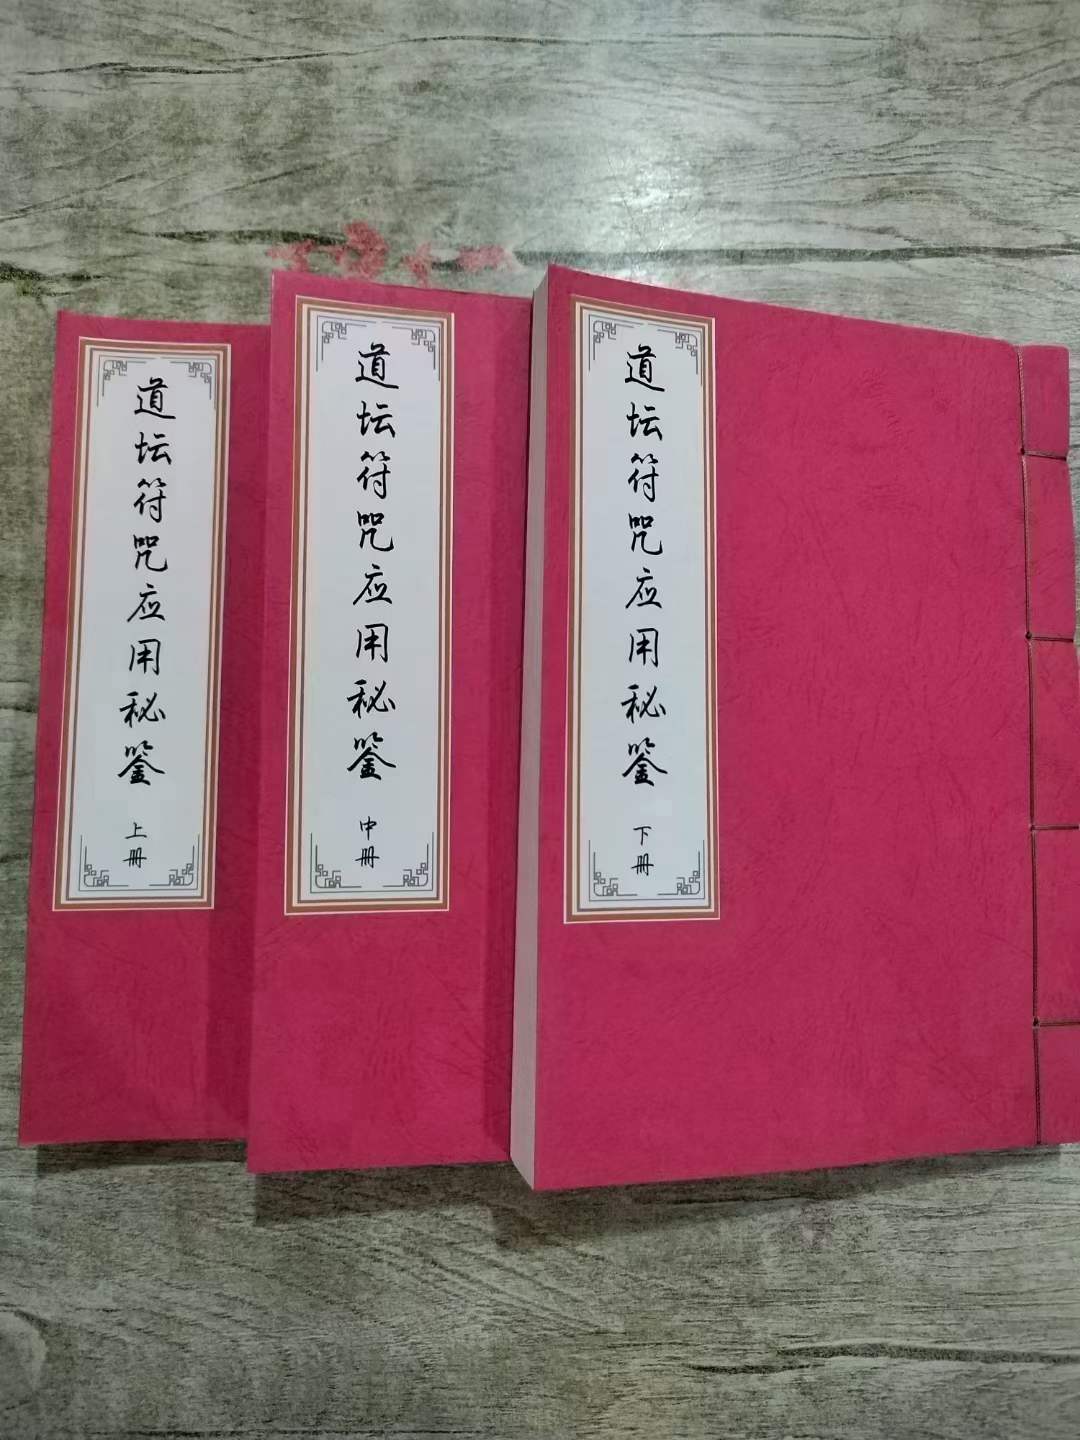 道坛符咒应用秘鉴
上册
道坛符咒应用秘鉴
中册
道坛符咒应用秘鉴
下册